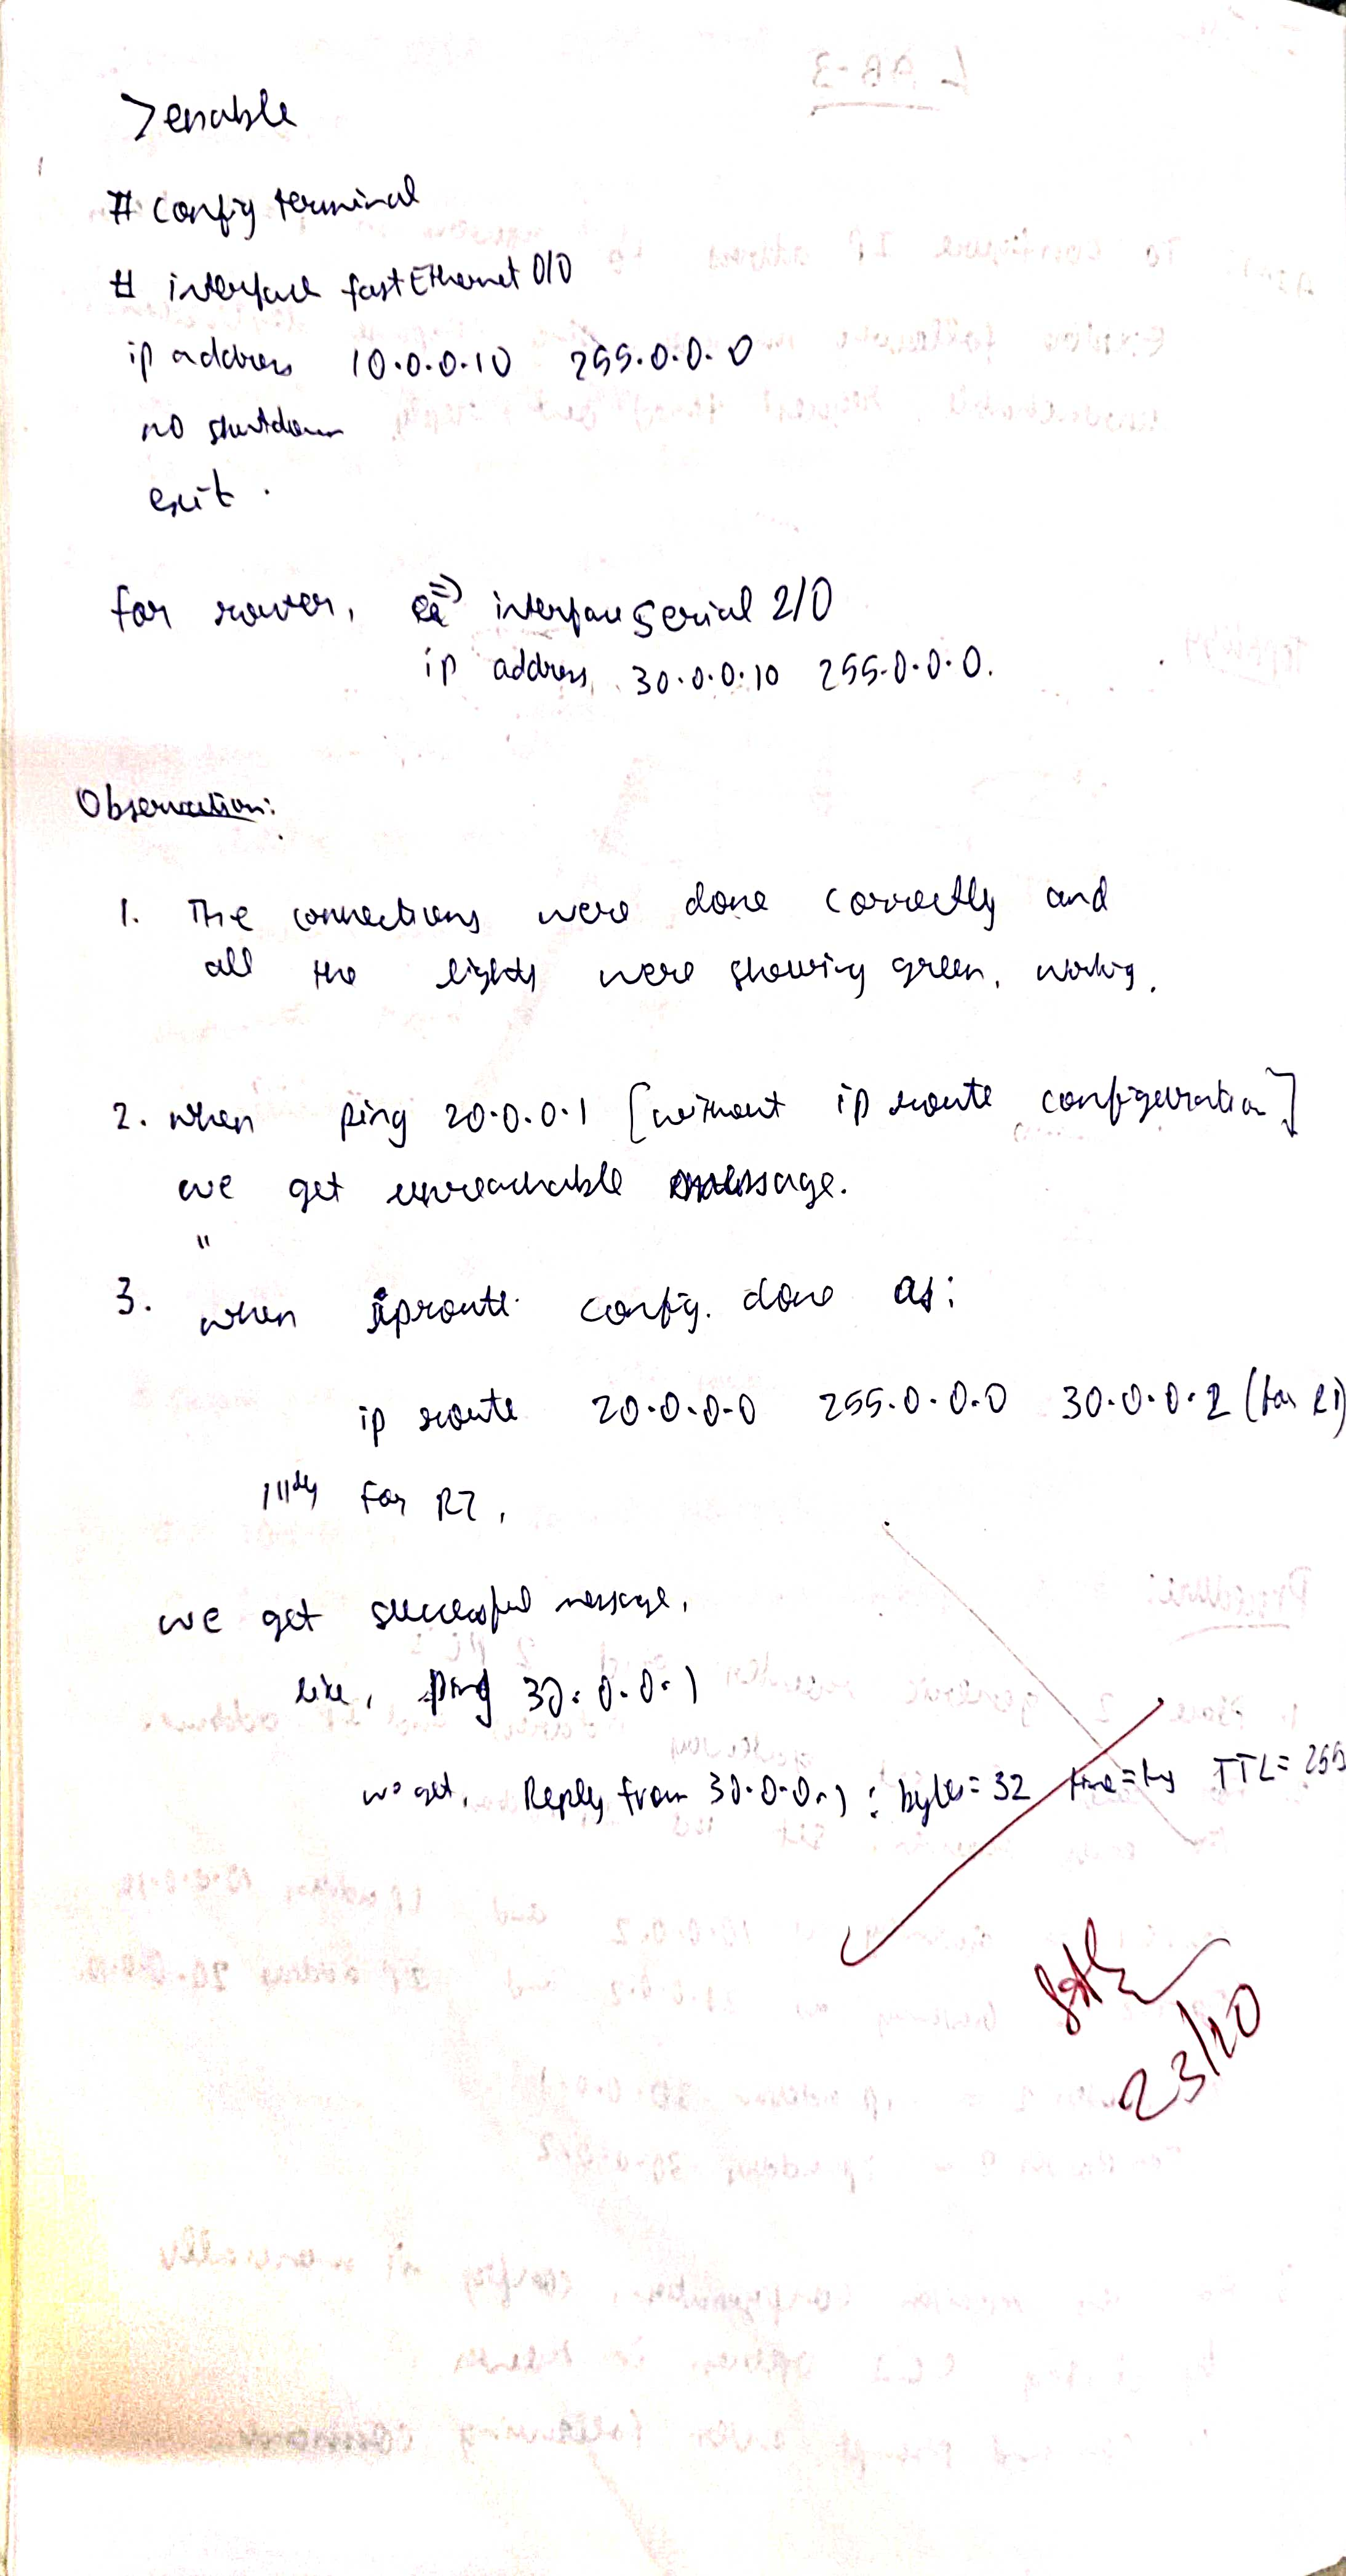 >enable
# config terminal
# interface fastEthernet 0/0
ip address 10.0.0.10 255.0.0.0
no shutdown
exit.
for router, => interface serial 2/0
ip address 30.0.0.10 255.0.0.0.
Observation:
1. The connections were done correctly and
all the lights were showing green, working.
2. when ping 20.0.0.1 [without ip route configuration]
we get unreachable message.
"
3. when iproute config. done as:
ip route 20.0.0.0 255.0.0.0 30.0.0.2 (for R1)
111ly for R2,
we get successful message,
like, ping 30.0.0.1
we get, Reply from 30.0.0.1 : bytes = 32 time = TTL = 255
23/10